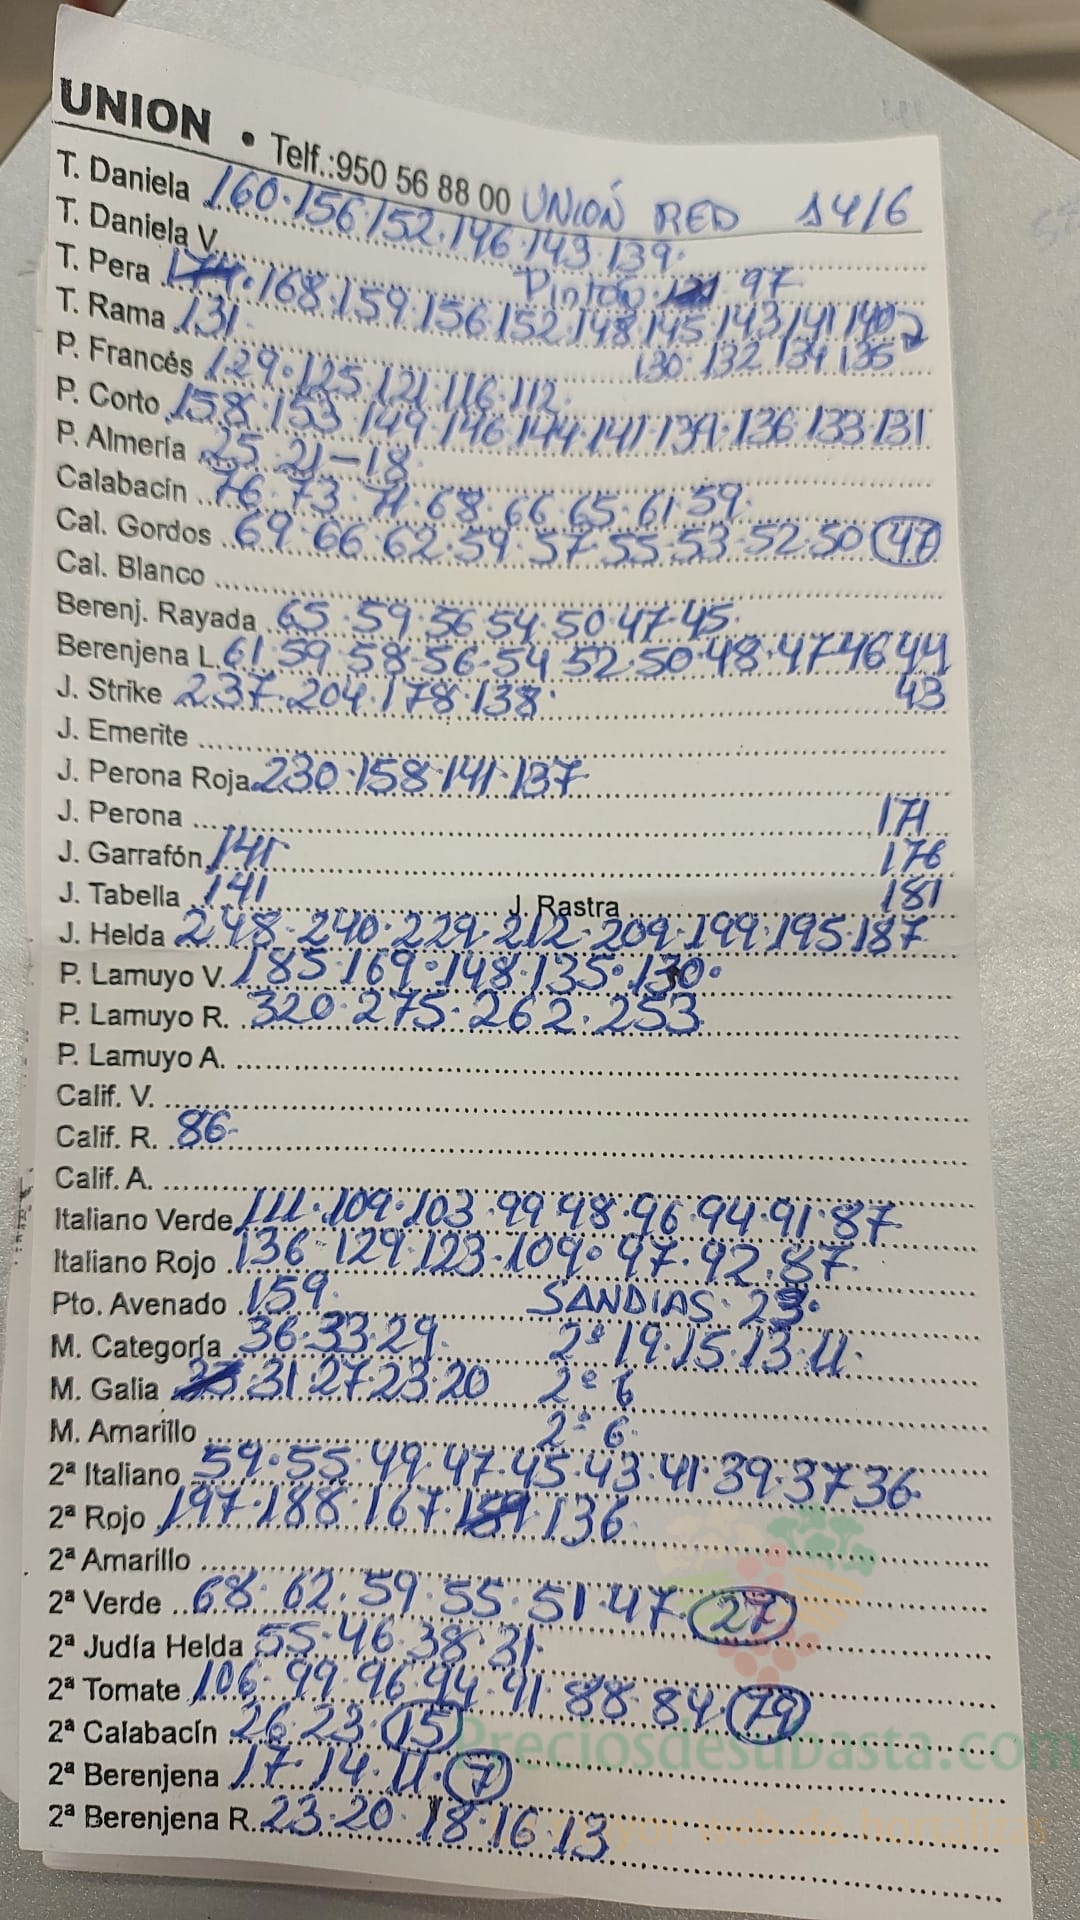 UNION • Telf.:950 56 88 00 UNIÓN RED 14/6
T. Daniela 160.156.152.146.143.139.
T. Daniela V. Pintón 97
T. Pera 168.159.156.152.148.145.143.141.140
T. Rama 131. 130.132.134.135
P. Francés 129.125.121.116.112.
P. Corto 158.153.149.146.144.141.139.136.133.131
P. Almería 25.21-18.
Calabacín 76.73.71.68.66.65.61.59.
Cal. Gordos 69.66.62.59.57.55.53.52.50 47
Cal. Blanco
Berenj. Rayada 65.59.56.54.50.47.45.
Berenjena L. 61.59.58.56.54.52.50.48.47.46 44
J. Strike 237.204.178.138. 43
J. Emerite
J. Perona Roja 230.158.141.137
J. Perona 171
J. Garrafón 141 176
J. Tabella 141 J. Rastra 181
J. Helda 248.240.229.212.209.199.195.187
P. Lamuyo V. 185.169.148.135.130.
P. Lamuyo R. 320.275.262.253
P. Lamuyo A.
Calif. V.
Calif. R. 86.
Calif. A.
Italiano Verde 111.109.103.99.98.96.94.91.87
Italiano Rojo 136.129.123.109.97.92.87.
Pto. Avenado 159. SANDIAS. 23.
M. Categoría 36.33.29. 2ª 19.15.13.11.
M. Galia 31.27.23.20 2ª 6
M. Amarillo 2ª 6.
2ª Italiano 59.55.49.47.45.43.41.39.37.36.
2ª Rojo 197.188.167. 136.
2ª Amarillo
2ª Verde 68.62.59.55.51.47. 27
2ª Judía Helda 55.46.38.31.
2ª Tomate 106.99.96.94.91.88.84. 79
2ª Calabacín 26.23. 15
2ª Berenjena 17.14.11. 7
2ª Berenjena R. 23.20.18.16.13
Preciosdesubasta.com
mayor web de hortalizas